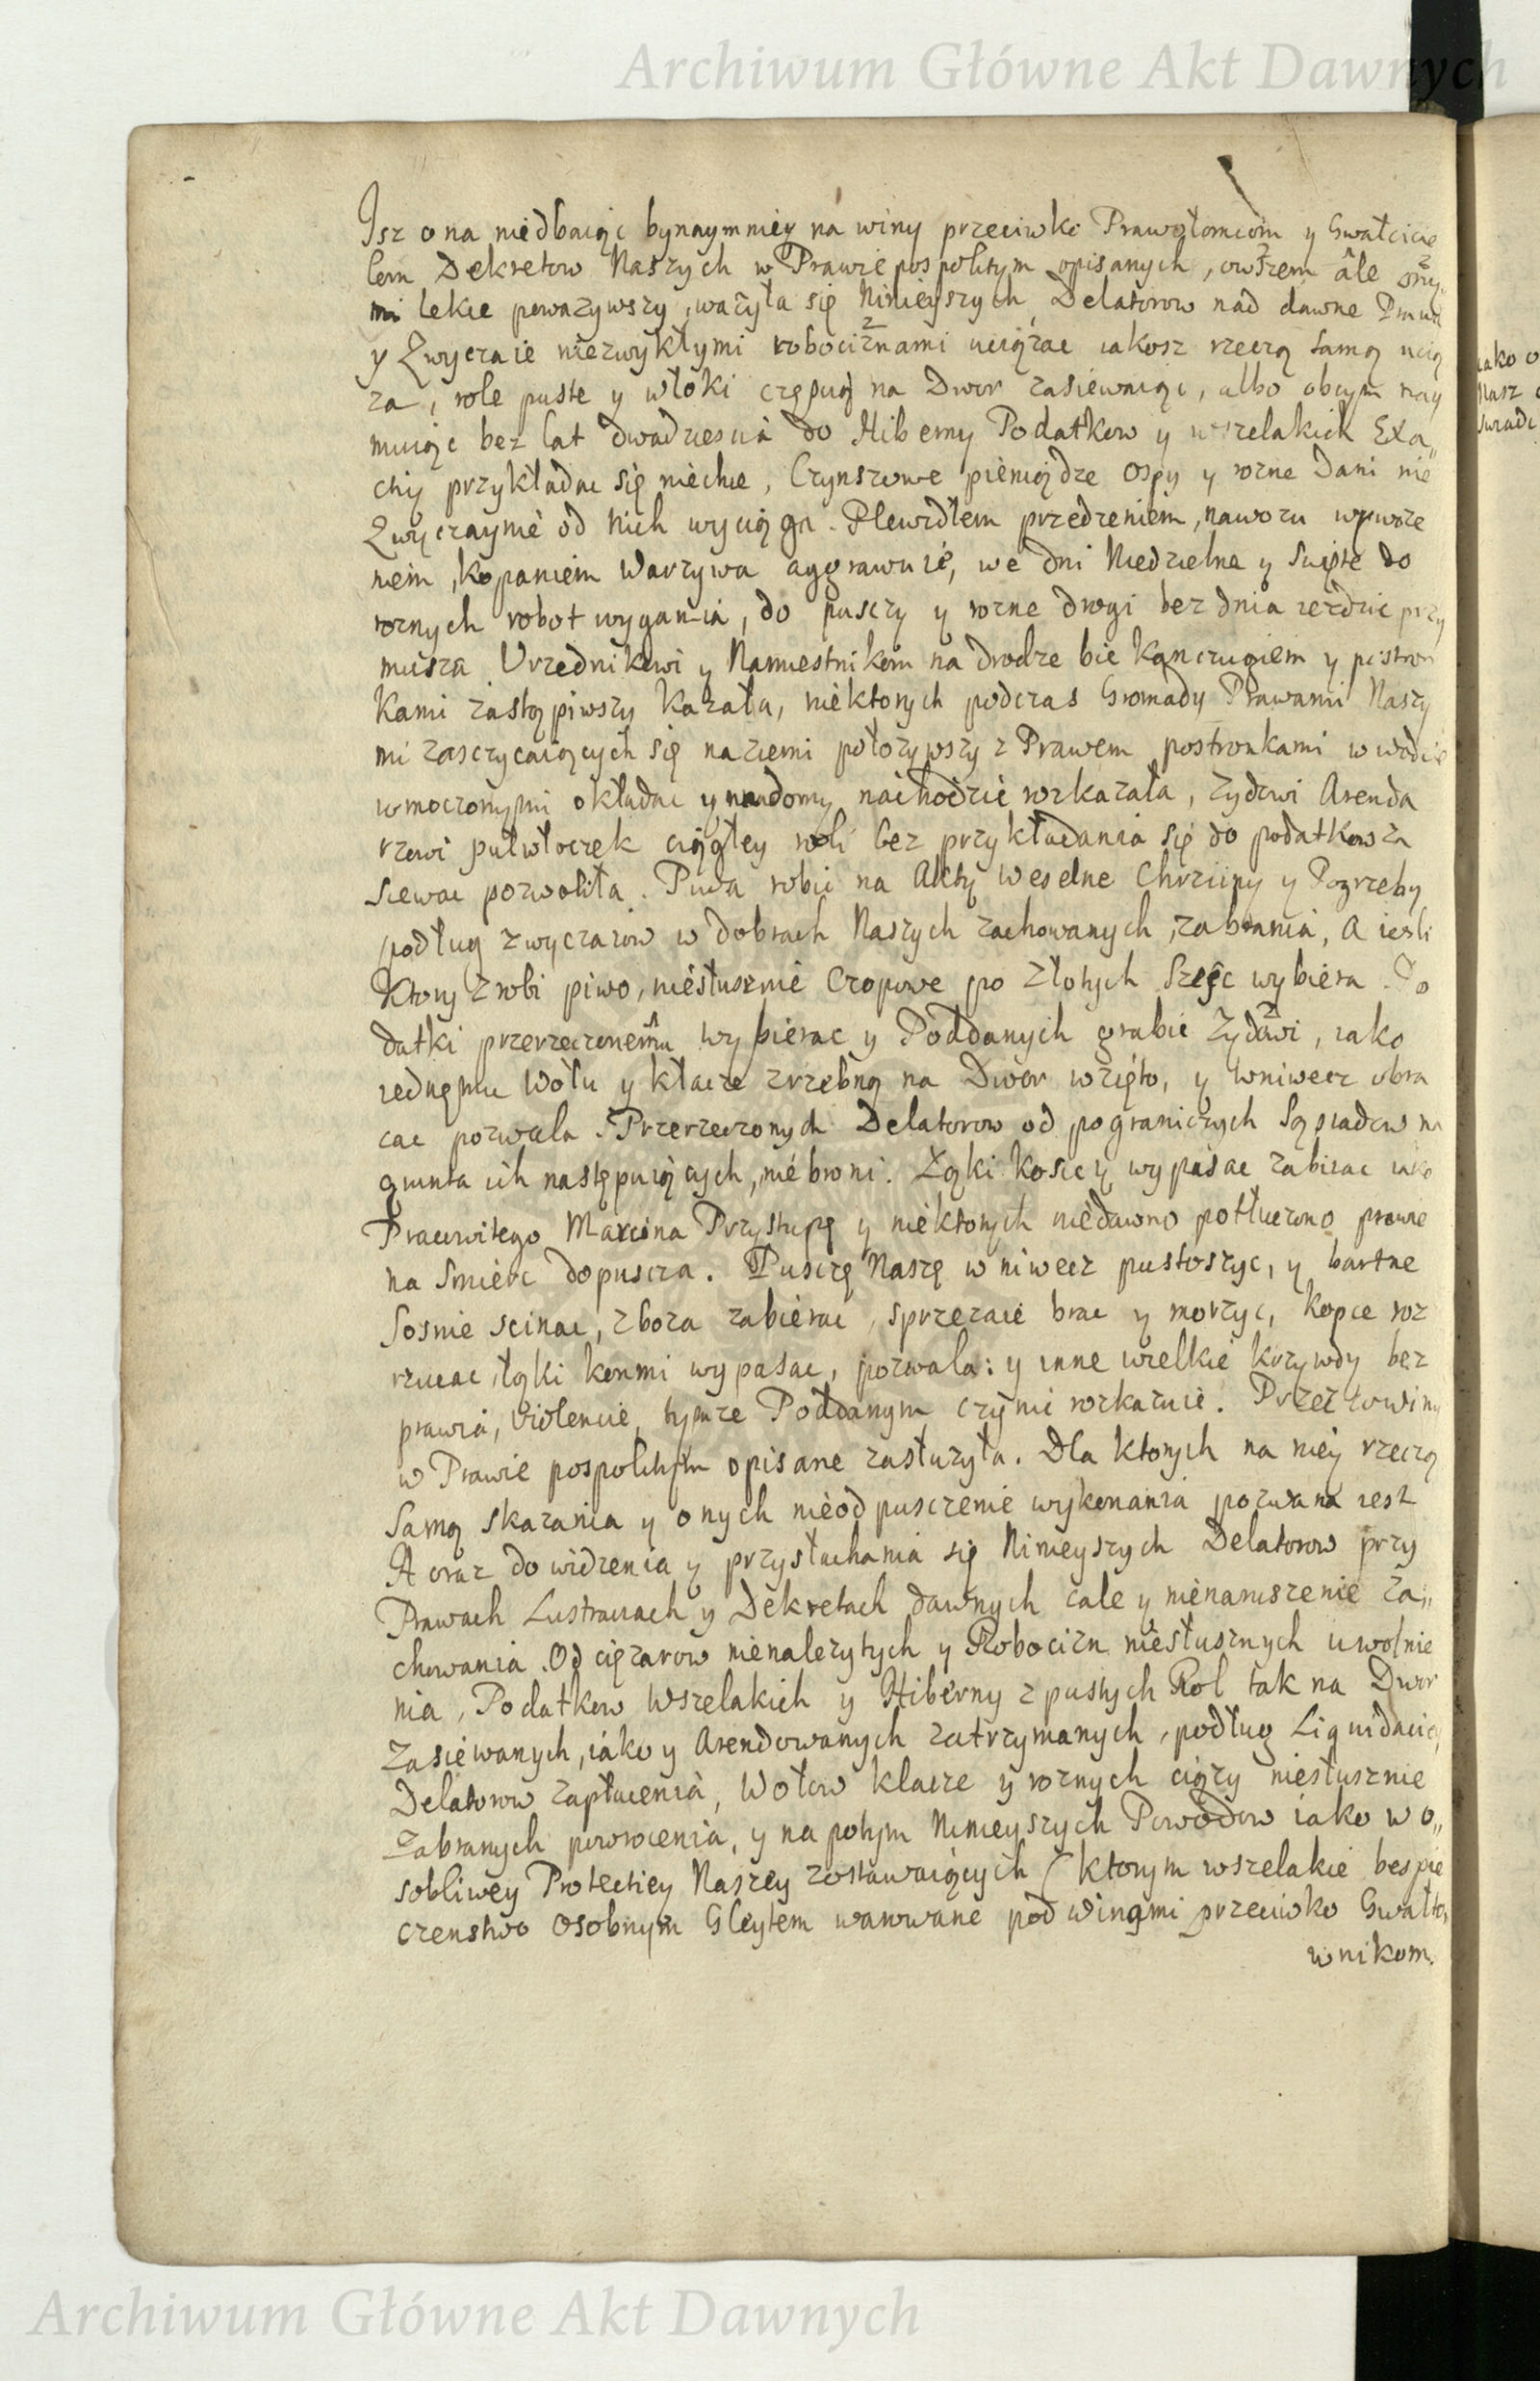 Archiwum Główne Akt Dawnych
Isz ona niedbaiąc bynaymniey na winy przeciwko Prawołomcom y Gwałcicie
lem Dekretow Naszych w Prawie pospolitym opisanych, owszem ale
mi lekce powazywszy, wazyła się Ninieyszych Delatorow nad dawne Prawa
y Zwyczaie niezwykłymi robociznami uciązac iakosz rzeczą samą ucią
za, role puste y włoki na Dwor zasiewaiąc, albo obcym nay
muiąc bez lat dwadziescia do Hiberny Podatkow y wszelakich Exa„
chiy przykładac się niechce, Czynszowe pieniądze Ospy y rozne Dani nie
Zwyczaynie od nich wyciąga. Plewidłem przedzeniem, nawozu wywoze
niem, kopaniem Warzywa aggrawuie, we dni Niedzielne y Swięte do
roznych robot wygania, do pusczy y rozne drogi bez dnia iezdzic przy
musza. Vrzednikowi y Namiestnikom na drodze bic kanczugiem y postron
kami zastąpiwszy kazała, niektorych podczas Gromady Prawami Naszy
mi zasczycaiących się na ziemi połozywszy z Prawem postronkami w wodzie
wmoczonymi okładac y na domy nachodzic rozkazała, Zydowi Arenda
rzowi pułwłoczek ciągłey roli bez przykładania się do podatkow za
siewac pozwoliła. Piwa robic na Akty Weselne Chrzciny y Pogrzeby
podług zwyczaiow w dobrach Naszych zachowanych, zabrania, A iesli
Ktory zrobi piwo, niesłusznie Czopowe po Złotych Szesc wybiera. Po
datki przerzeczonemu wybierac y Poddanych grabic Zydowi, iako
iednemu Wołu y kłacze zrzebną na Dwor wzięto, y wniwecz obra
cac pozwala. Przerzeczonych Delatorow od pogranicznych Sąsiadow na
grunta ich następuiących, niebroni. Łąki kosic y wypasac zabirac iako
Pracowitego Marcina Przystupę y niektorych niedawno potłuczono prawie
na Smierc dopuscza. Pusczę Naszę wniwecz pustoszyc, y bartne
Sosnie scinac, zboza zabierac, sprzezaie brac y morzyc, kopce roz
rzucac, łąki konmi wypasac, pozwala: y inne wielkie krzywdy bez
prawia, violencie, tymze Poddanym czynic rozkazuie. Przez co winy
w Prawie pospolitym opisane zasłuzyła. Dla ktorych na niey rzeczą
samą skazania y onych nieodpusczenie wykonania pozwana iest
A oraz do widzenia y przysłuchania się Ninieyszych Delatorow przy
Prawach Lustraciach y Dekretach dawnych cale y nienaruszenie za„
chowania. Od cięzarow nienalezytych y Robocizn niesłusznych uwolnie
nia, Podatkow Wszelakich y Hiberny z pustych Rol tak na Dwor
Zasiewanych, iako y Arendowanych zatrzymanych, podług Liquidaciey
Delatorow zapłacenia, Wołow klacze y roznych ciązy niesłusznie
Zabranych powrocenia, y na potym Ninieyszych Powodow iako w o„
sobliwey Protectiey Naszey zostawaiących (ktorym wszelakie bespie
czenstwo osobnym Gleytem warowane pod winami przeciwko Gwałto„
wnikom.
iako o
Nasz
swiadc
Archiwum Główne Akt Dawnych